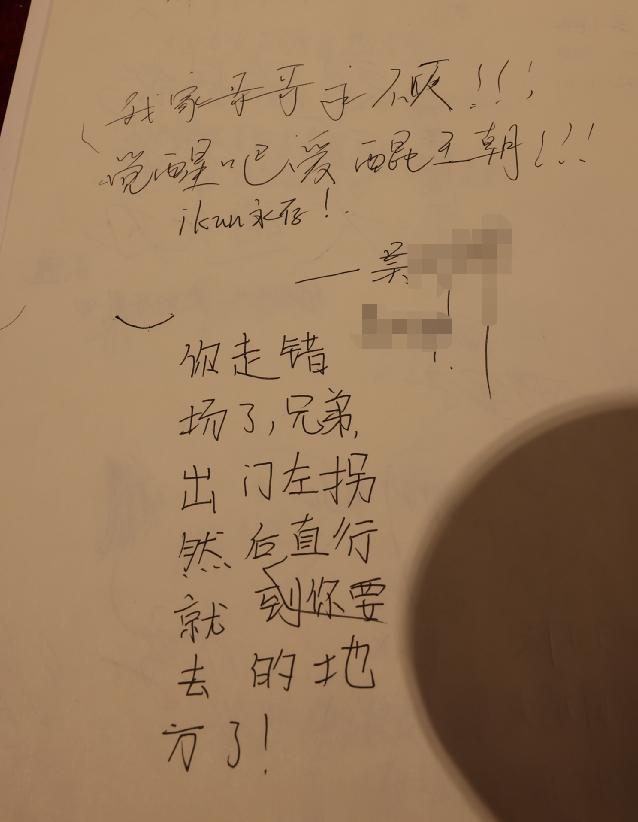 我家哥哥永不灭！！！
觉醒吧爱醌王朝！！！
ikun永存！.
——某
你走错
场了,兄弟,
出门左拐
然后直行
就到你要
去的地
方了！